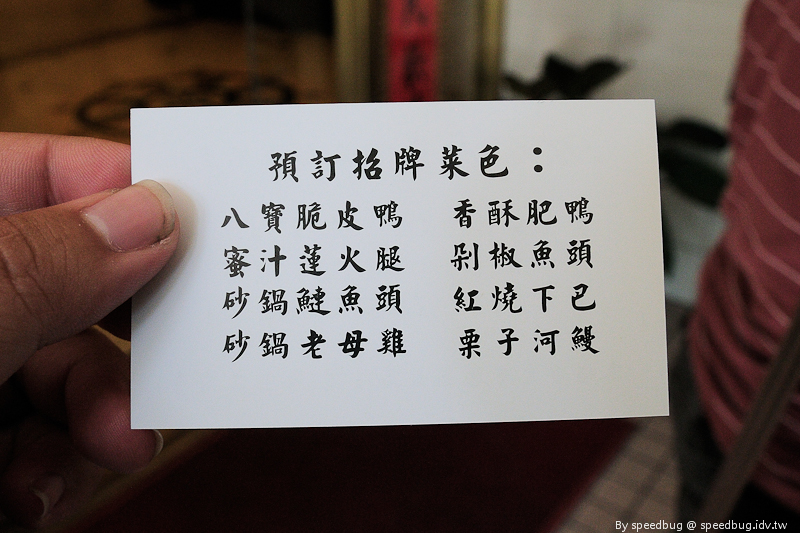 預訂招牌菜色：
八寶脆皮鴨 香酥肥鴨
蜜汁蓮火腿 剁椒魚頭
砂鍋鰱魚頭 紅燒下巴
砂鍋老母雞 栗子河鰻
By speedbug @ speedbug.idv.tw